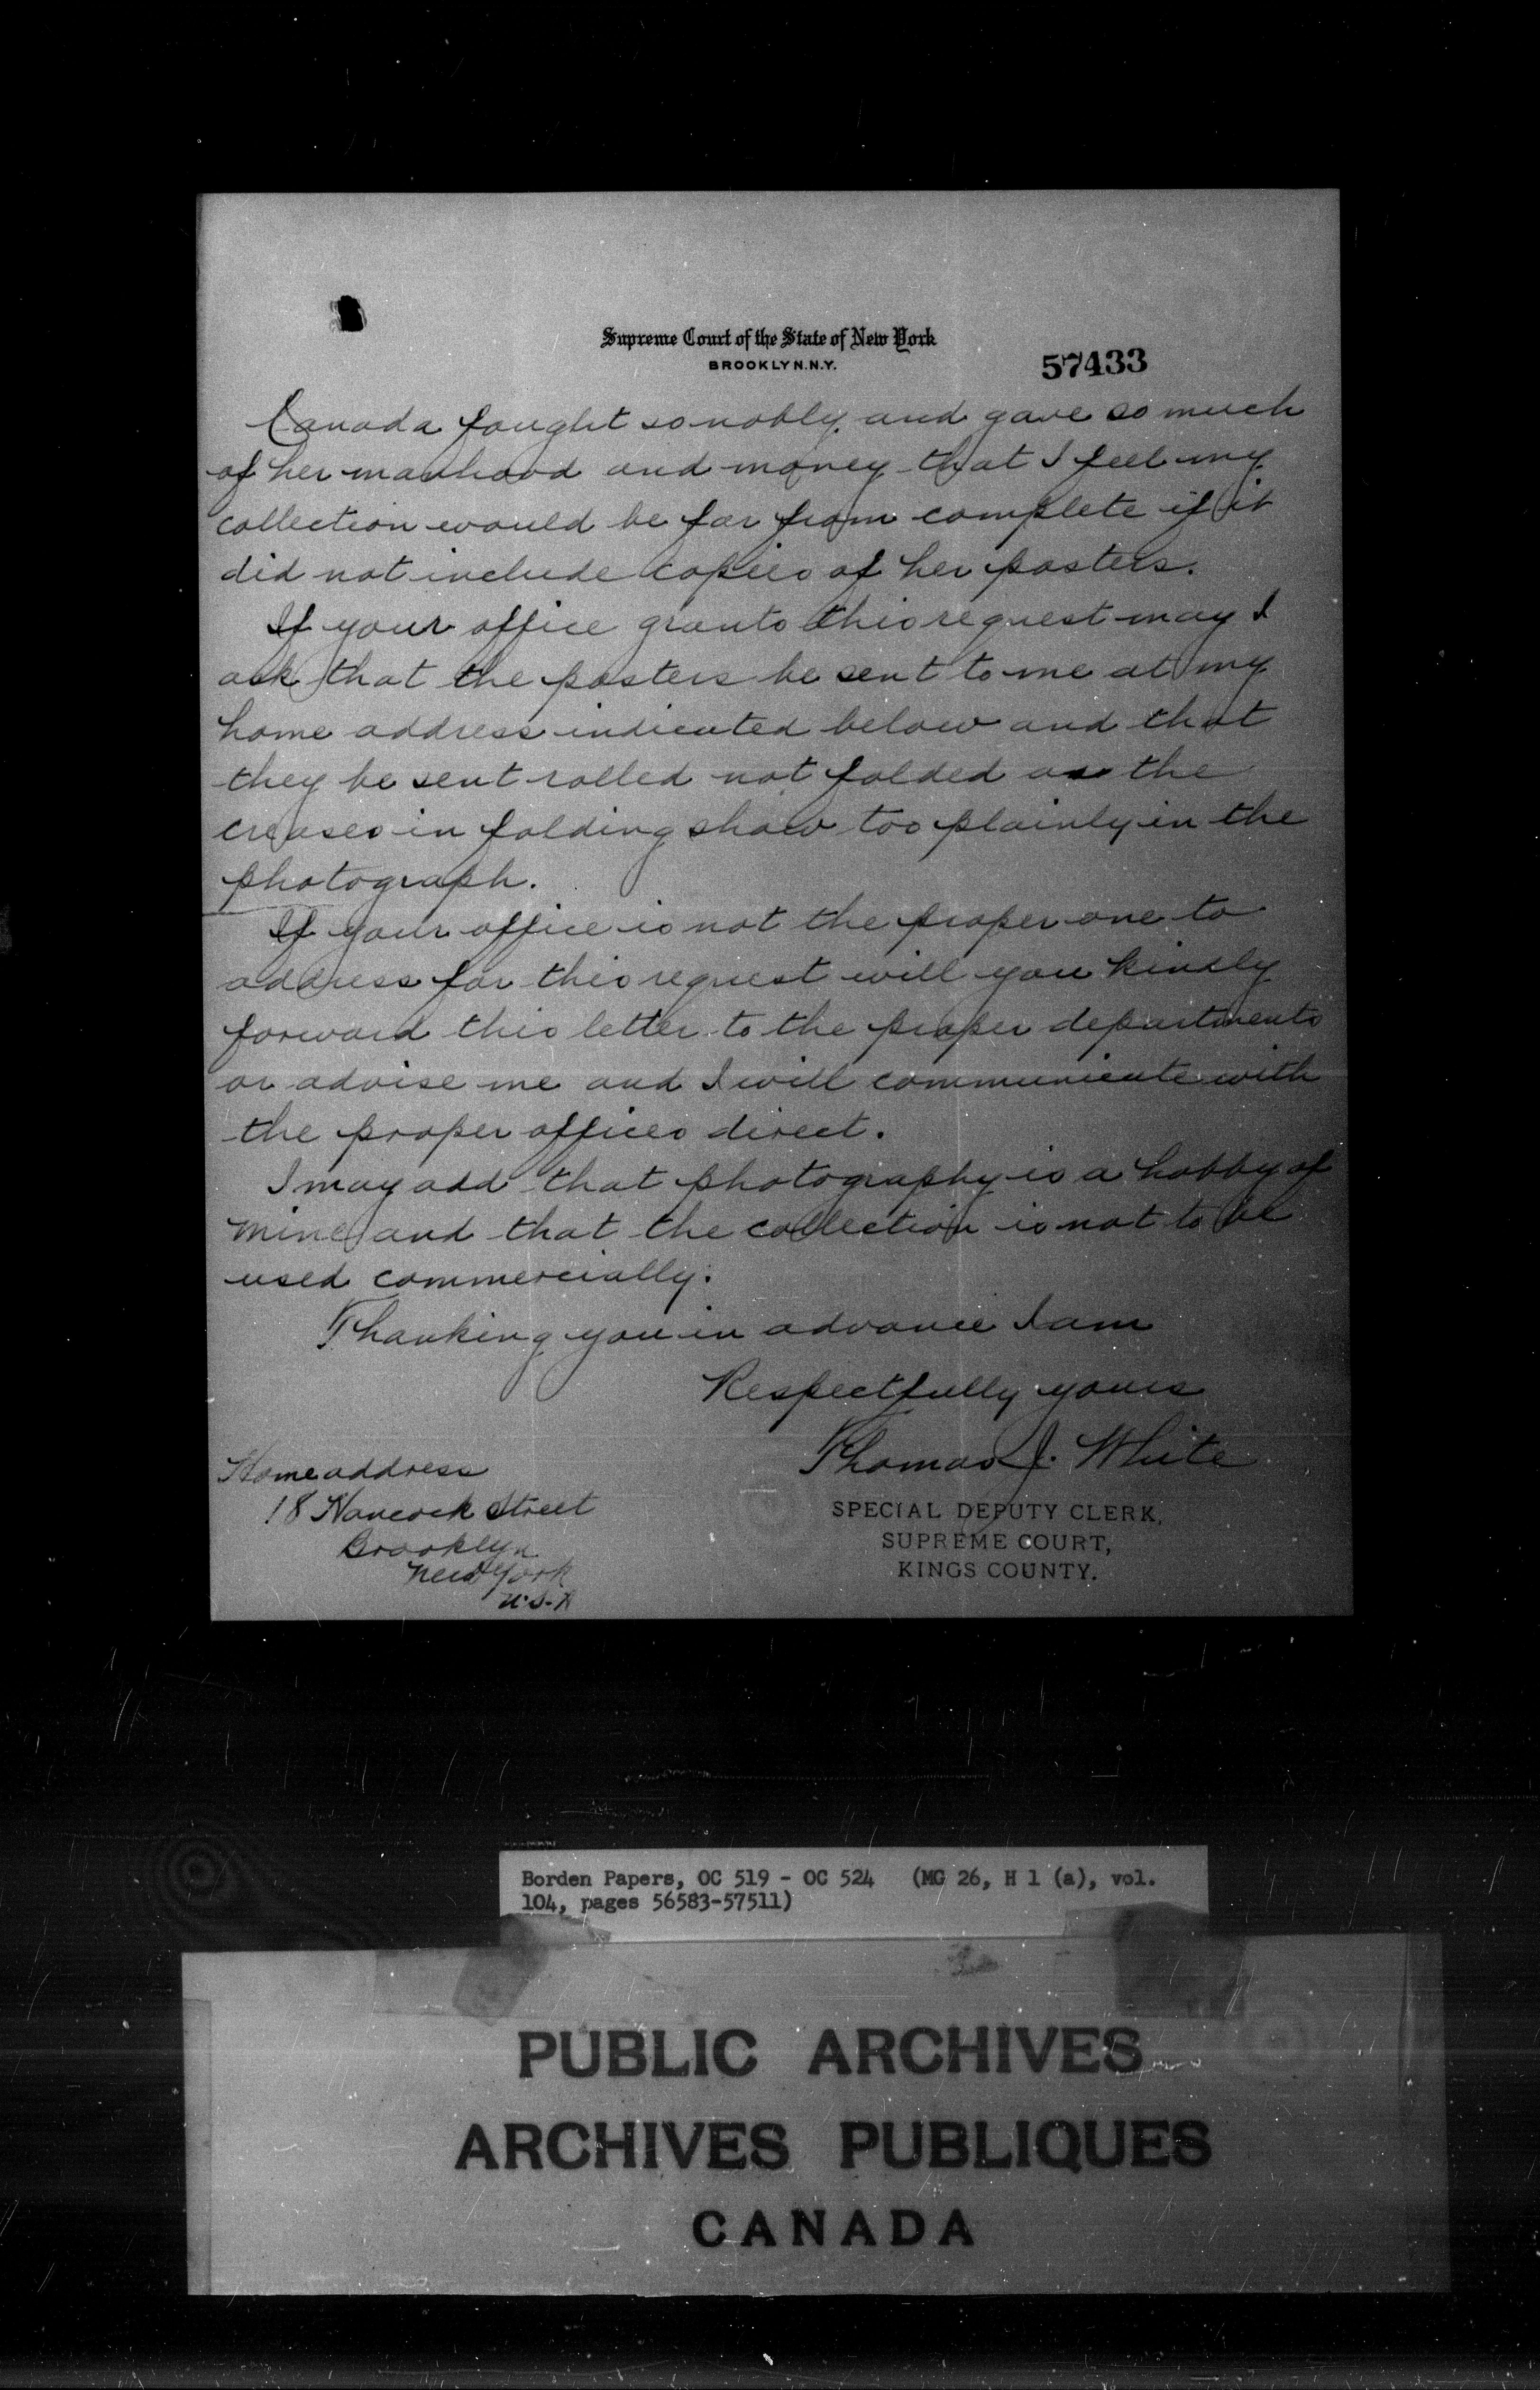 Supreme Court of the State of New York
BROOKLYN.N.Y.
57433
Canada fought so nobly and gave so much
of her manhood and money that I feel my
collection would be far from complete if it
did not include copies of her posters.
If your office grants this request may I
ask that the posters be sent to me at my
home address indicated below and that
they be sent rolled not folded as the
creases in folding show too plainly in the
photograph.
If your office is not the proper one to
address for this request will you kindly
forward this letter to the proper departments
or advise me and I will communicate with
the proper offices direct.
I may add that photography is a hobby of
mine and that the collection is not to be
used commercially.
Thanking you in advance I am
Respectfully yours
Thomas J. White
SPECIAL DEPUTY CLERK,
SUPREME COURT,
KINGS COUNTY.
Home address
18 Hancock Street
Brooklyn
New York
U.S.A
Borden Papers, OC 519 - OC 524 (MG 26, H 1 (a), vol.
104, pages 56583-57511)
PUBLIC ARCHIVES
ARCHIVES PUBLIQUES
CANADA